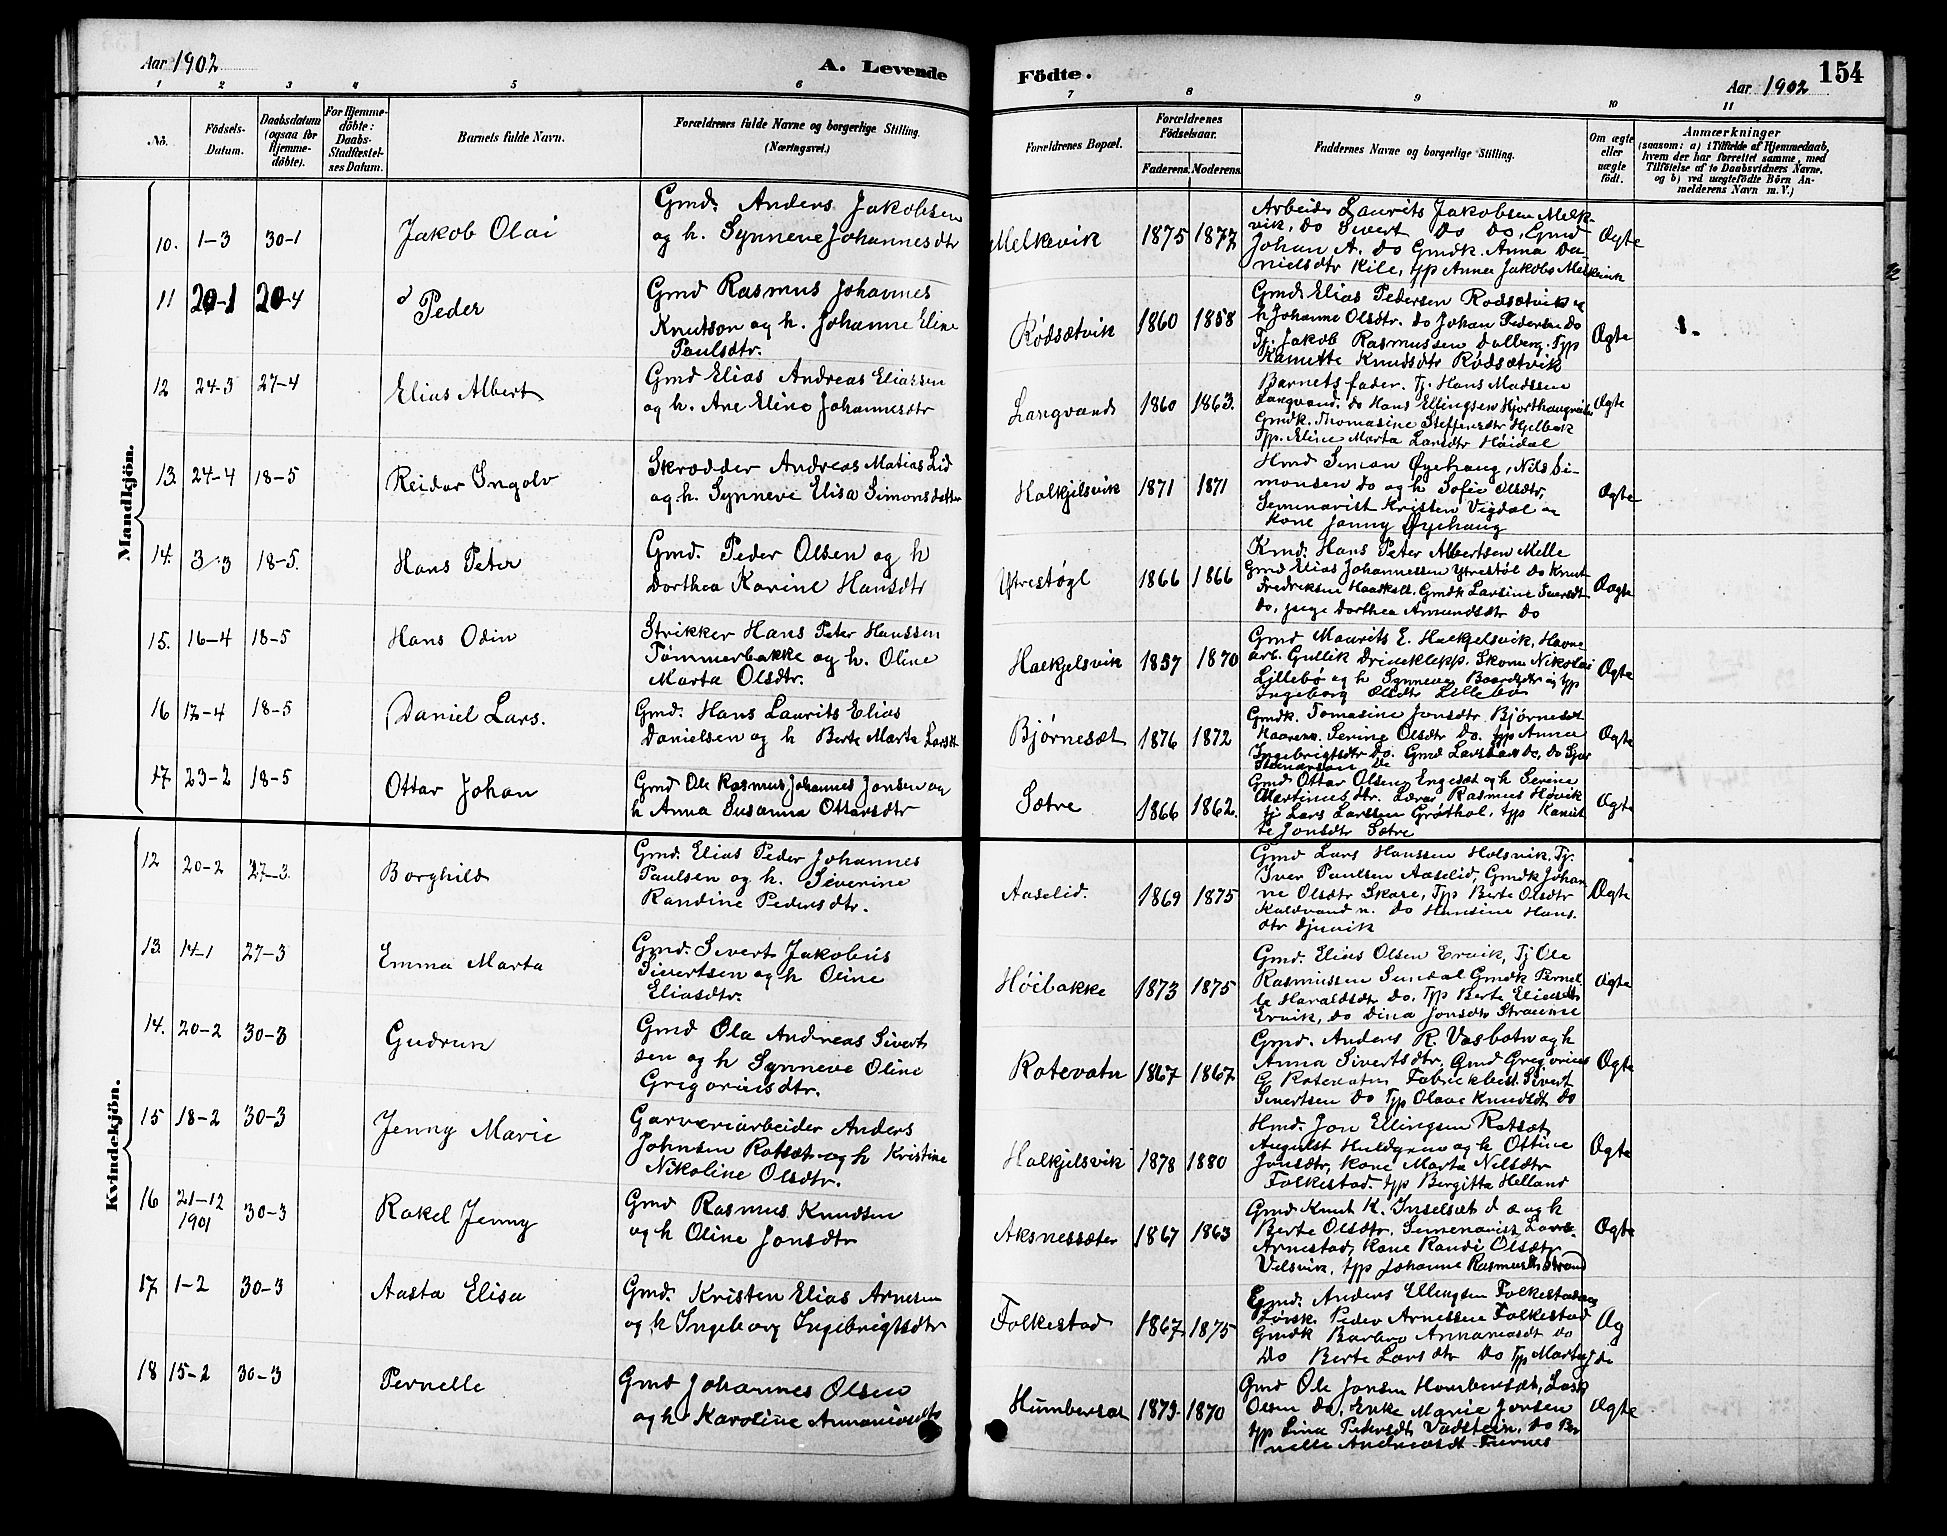 Aar 1902
A. Levende
Födte.
154
Aar 1902
1 2 3 4 5 6 7 8 9 10 11
No.
Födsels-
Datum.
Daabsdatum
(ogsaa for
Hjemme-
döbte).
For Hjemme-
döbte:
Daabs-
Stadfæstel-
ses Datum.
Barnets fulde Navn.
Forældrenes fulde Navne og borgerlige Stilling.
(Næringsvei.)
Forældrenes Bopæl.
Forældrenes
Födselsaar.
Faderens. Moderens.
Faddernes Navne og borgerlige Stilling.
Om ægte
eller
uægte
födt.
Anmærkninger
(saasom: a) i Tilfælde af Hjemmedaab,
hvem der har forrettet samme, med
Tilföielse af to Daabsvidners Navne,
og b) ved uægtefödte Börn An-
melderens Navn m. V.)
Mandkjön.
10. 1-3 30-1 Jakob Olai
Gmd. Anders Jakobsen
og h. Synneve Johannesdtr
Melkevik 1875 1877
Arbeider Laurits Jakobsen Melk-
vik, do Sivert do do, Gmd
Johan A. do Gmdk. Anna Da-
nielsdtr Kile, typ Anna Jakobs Melkevik
Ægte
11 20-1 20-4 Peder
Gmd Rasmus Johannes
Knutson og h. Johanne Eline
Paulsdtr.
Rødsætvik 1860 1858
Gmd. Elias Pedersen Rodsætvik og
h Johanne Olsdtr. do Johan Pedersen do
Tj. Jakob Rasmussen Dalberg. Typ
Kanutte Knudsdtr Rødsætvik
Ægte
12 24-3 27-4 Elias Albert
Gmd Elias Andreas Eliassen
og h. Ane Eline Johannesdtr
Langvand 1860 1863.
Barnets fader. Tj. Hans Madssen
Langvand. do Hans Ellingsen Hjorthaugvik
Gmdk. Thomasine Steffensdtr Hjelbak
Typ. Eline Marta Larsdtr Høidal
Ægte
13. 24-4 18-5 Reidar Ingolv
Skrædder Andreas Matias Lid
og h. Synneve Elisa Simonsdatter
Halkjelsvik 1871 1871
Hmd Simon Øyehaug, Nils Si-
monsen do og h Sofie Olsdtr,
Seminarist Kristen Vigdal og
Kone Janny Øyehaug
Ægte
14. 3-3 18-5. Hans Peter
Gmd. Peder Olsen og h
Dorthea Karine Hansdtr
Ytrestøyl 1866 1866
Kmd. Hans Peter Albertsen Melle
Gmd Elias Johannessen Ytrestøl do Knut
Fredriksen Haadkoll. Gmdk Larsine Iversdtr
do, pige Dorthea Amundsdtr do
Ægte
15. 16-4 18-5 Hans Odin
Strikker Hans Peter Hanssen
Tømmerbakke og h. Oline
Marta Olsdtr.
Halkjelsvik 1857 1870
Gmd Maurits E. Halkjelsvik, Havne
arb. Gullik Drineklepp. Skom Nikolai
Lillebø og h Synneve Baardsdtr og typ
Ingeborg Olsdtr Lillebø
Ægte
16 17-4 18-5 Daniel Lars.
Gmd. Hans Laurits Elias
Danielsen og h Berte Marta Larsdt
Bjørnesæt 1876 1872
Gmdk. Tomasine Jonsdtr Bjørnesæt
Serine Olsdtr do. typ Anna
Ingebrigtsdtr do. Gmd
Ægte
17 23-2 18-5 Ottar Johan
Gmd Ole Rasmus Johannes Jonsen og
h Anna Susanna Ottarsdtr
Sætre 1866 1862.
Gmd Ottar Olsen Engeset og h Serine
Martinusdtr. Lærer Rasmus Høvik
tj Lars Larssen Grøthol, typ Kanut
te Jonsdtr Sætre
Ægte
Kvindekjön.
12 20-2 27-3. Borghild
Gmd. Elias Peder Johannes
Paulsen og h. Siverine
Randine Pedersdtr.
Aaselid. 1869 1875
Gmd Lars Hanssen Holsvik, Tj.
Iver Paulsen Aaselid, Gmdk Johan
ne Olsdtr Skare, Typ Berte Olsdtr
Kaldvand n. do Hansine Hans
dtr Djuvik
Ægte
13. 14-1 27-3 Emma Marta
Gmd. Sivert Jakobus
Sivertsen og h Oline
Eliasdtr.
Høibakke 1873 1875
Gmd. Elias Olsen Ervik, Tj Ole
Rasmussen Sundal Gmdk Pernel
le Haraldsdtr do, Typ Berte Eliasdtr
Ervik, do Dina Jonsdtr Straume
Ægte
14. 20-2 30-3 Gudrun
Gmd Ola Andreas Sivert
sen og h Synneve Oline
Gregoriusdtr.
Rotevatn 1867 1867
Gmd. Anders R. Vasbotn og h
Anna Sivertsdtr, Gmd Gregorius
G Rotevatn Fabrikbest. Sivert
Sivertsen do Typ Olave Knudsdt do
Ægte
15 18-2 30-3 Jenny Marie
Garveriarbeider Anders
Johnsen Rotsæt og h Kristine
Nikoline Olsdtr.
Halkjelsvik 1878 1880
Hmd. Jon Ellingsen Rotsæt
August Huldgren og h Ottine
Jonsdtr, Kone Marta Nilsdtr
Folkestad. typ Bergitta Helland
Ægte
16 21-12
1901 30-3 Rakel Jenny
Gmd Rasmus Knudsen
og h Oline Jonsdtr
Aksnessæter 1867 1863
Gmd Knut K. Inselsæt d æ og h
Berte Olsdtr, Semenarist Lars
Arnestad, Kone Randi Olsdtr
Velsvik, typ Johanne Rasmusdt Strand
Ægte
17 1-2 30-3 Aasta Elisa
Gmd. Kristen Elias Arnesen
og h Ingeborg Ingebrigtsdtr
Folkestad 1867 1875
Gmd. Anders Ellingsen Folkestad
Lørsk. Peder Arnessen Folkestad
Gmdk Barbro Annaniasdt do
do Berte Larsdtr do Typ Marta J do
Æg
18 15-2 30-3 Pernelle
Gmd Johannes Olsen
og h Karoline Annaniasdtr
Humberset 1873. 1870
Gmd Ole Jonsen Humberset, Lars
Olsen do, Enke Marie Jonsen
typ Lina Pedersdt Vadstein, do Per
nelle Andreasdt. Furnes
Ægte